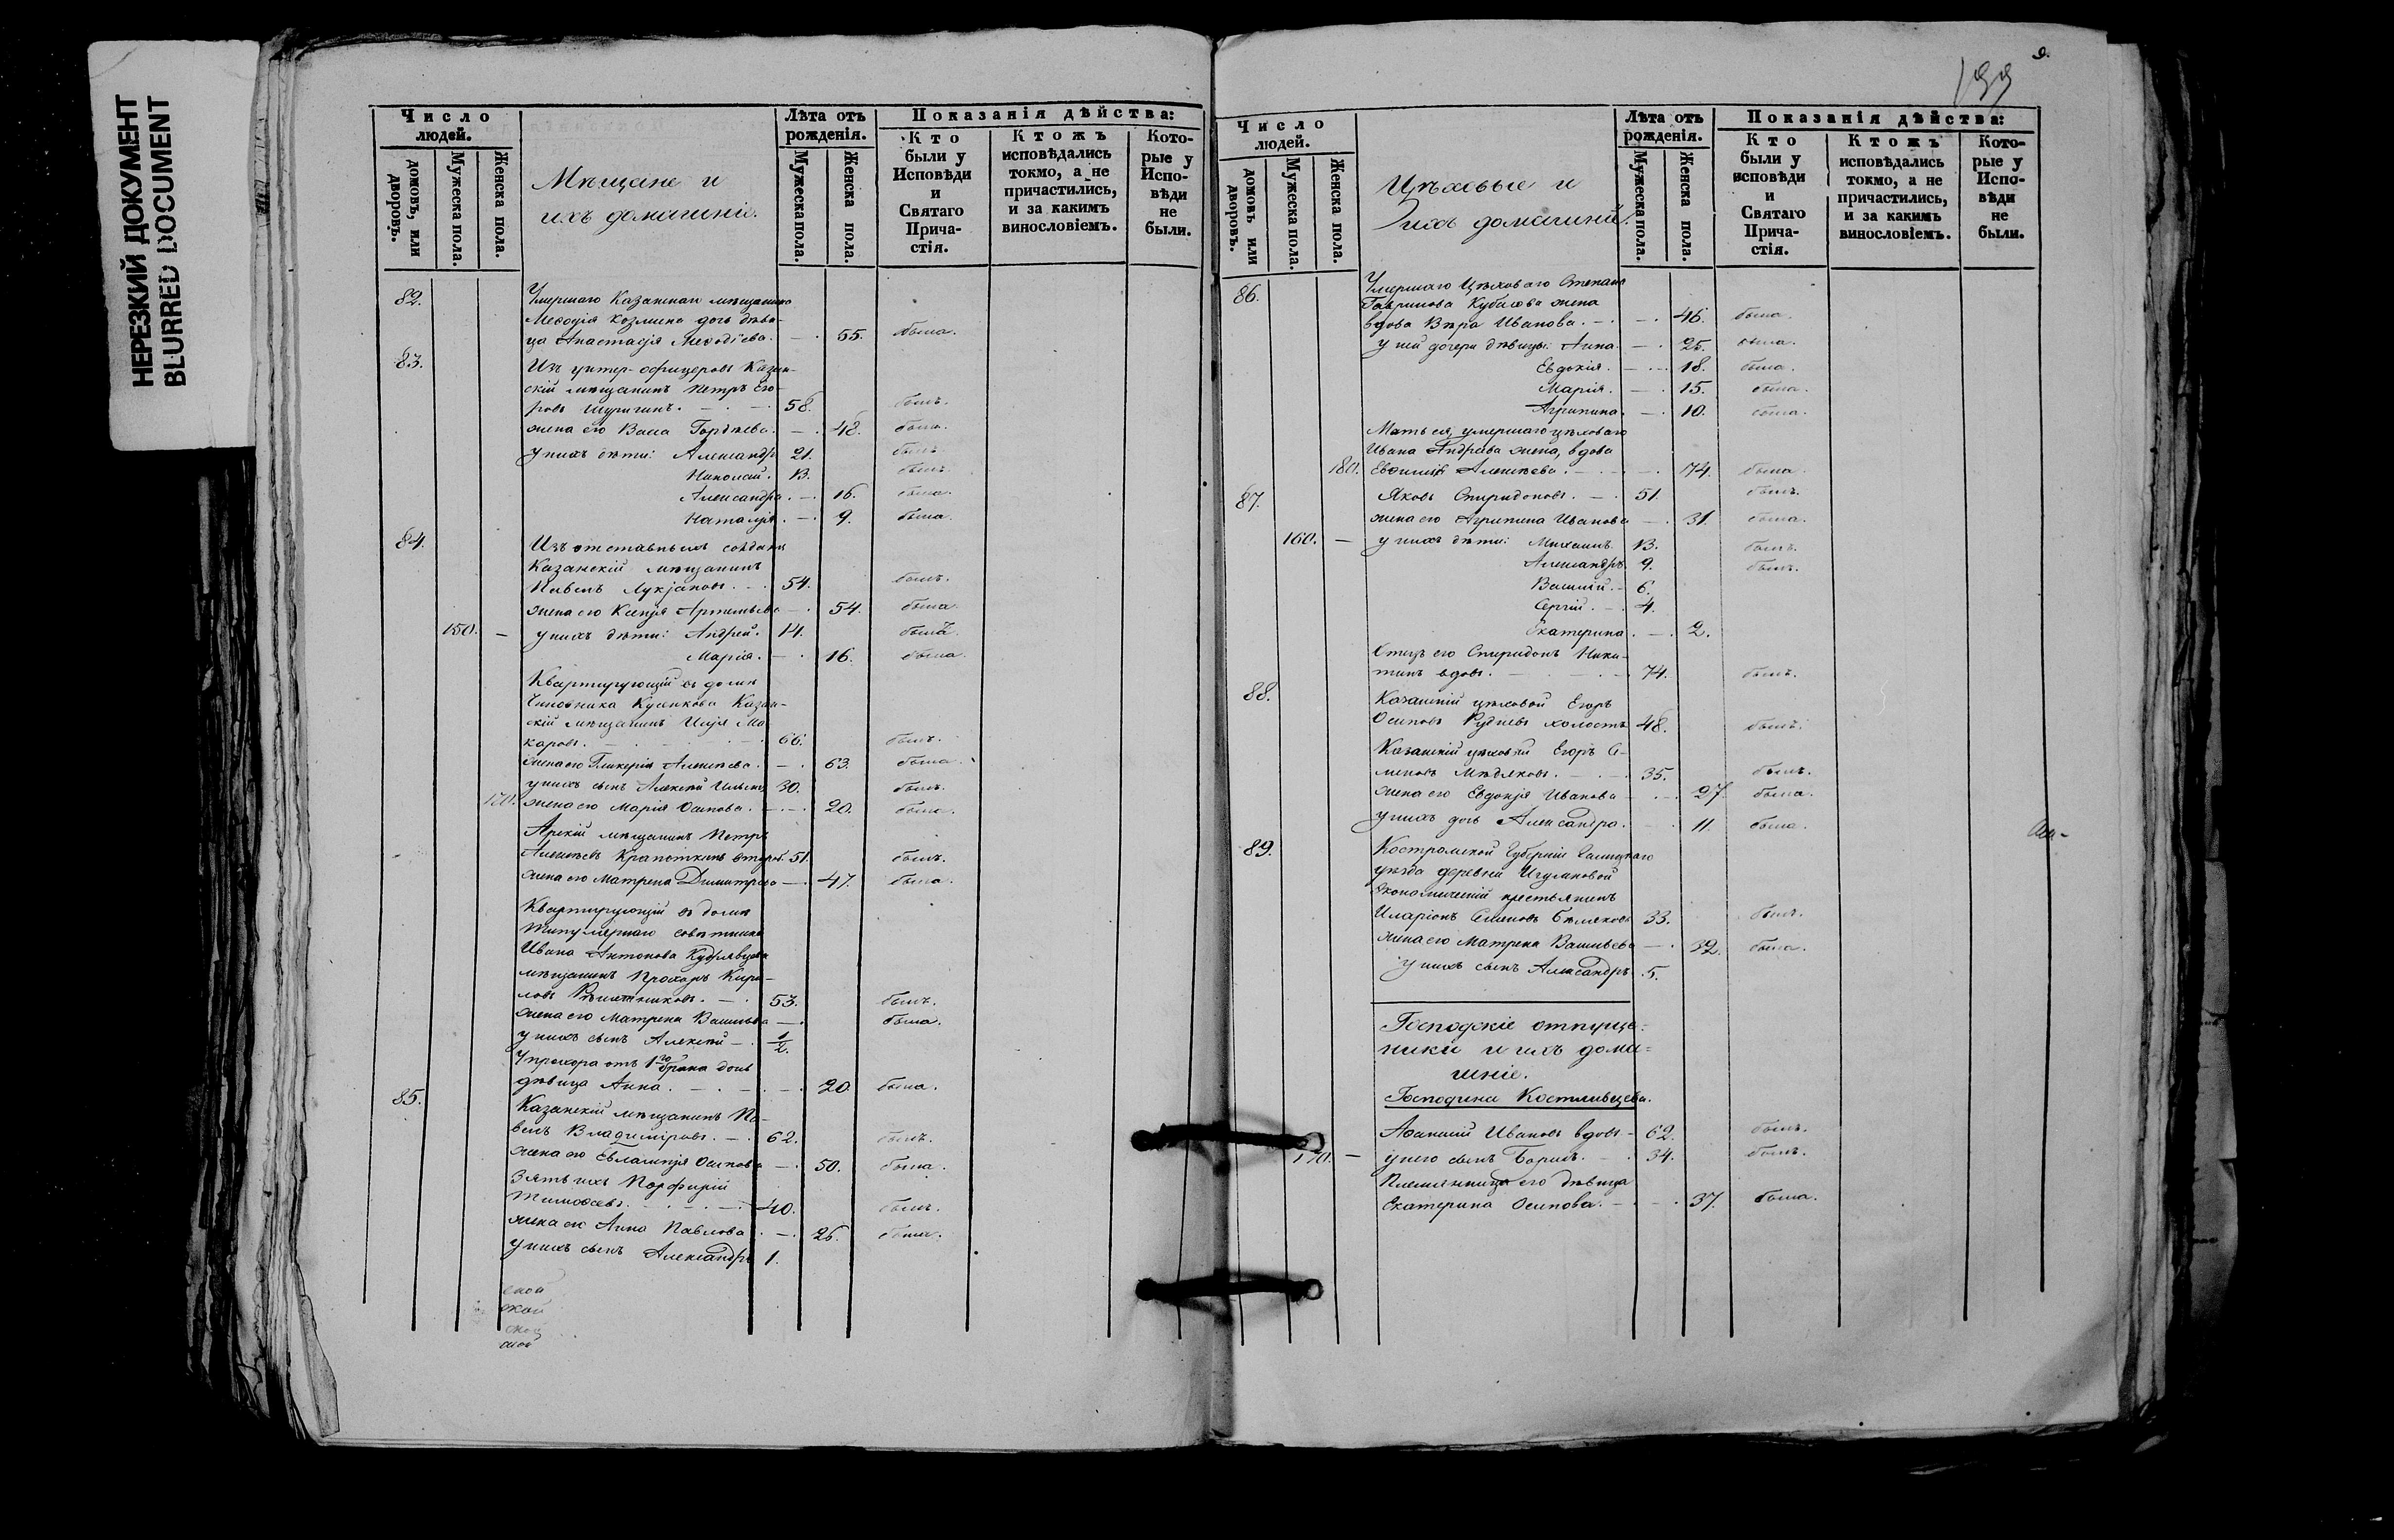 НЕРЕЗКИЙ ДОКУМЕНТ
BLURRED DOCUMENT
Число людей.
домовъ, или дворовъ.
Мужеска пола.
Женска пола.
Мѣщане и
ихъ домашніе.
Лѣта отъ рожденія.
Мужеска пола.
Женска пола.
Показанія дѣйства:
Кто были у Исповѣди и Святаго Прича-стія.
Ктожъ исповѣдались токмо, а не причастились, и за какимъ винословіемъ.
Кото-рые у Испо-вѣди не были.
82. Умершаго Казанскаго мѣщанина
Меѳодія Козмина дочь дѣви-
ца Анастасія Меѳодіева. — 55. была.
83. Изъ унтер-офицеровъ Казан-
скій мѣщанинъ Петръ Его-
ровъ Шуригинъ. — 58. былъ.
жена его Васса Гордѣева. — 48. была.
у нихъ дѣти: Александръ 21. былъ.
Николай. 13. былъ.
Александра. — 16. была.
Наталія. — 9. была.
84. Изъ отставныхъ солдатъ
Казанскій мѣщанинъ
Павелъ Лукіановъ. — 54. былъ.
жена его Ксенія Артемьева — 54. была.
150. — у нихъ дѣти: Андрей. 14. былъ.
Марія. — 16. была.
Квартирующій въ домѣ
Чиновника Казан-
скій мѣщанинъ Илія Ма-
каровъ. 66. былъ.
жена его Гликерія Алексѣева. — 63. была.
у нихъ сынъ Алексѣй Ильинъ 30. былъ.
170. жена его Марія Осипова. — 20. была.
Арскій мѣщанинъ Петръ
Алексѣевъ 51. былъ.
жена его Матрена Димитріева — 47. была.
Квартирующій въ домѣ
Титулярнаго совѣтника
Ивана Антонова Кудрявцева
мѣщанинъ Прохоръ Кири-
ловъ 53. былъ.
жена его Матрена Васильева — была.
у нихъ сынъ Алексѣй — 1/2.
У Прохора отъ 1го брака дочь
дѣвица Анна. — 20. была.
85. Казанскій мѣщанинъ Па-
велъ Владиміровъ. — 62. былъ.
жена его Евлампія Осипова — 50. была.
Зять ихъ Порфирій
Тимоѳеевъ. — 40. былъ.
жена его Анна Павлова — 26. была.
у нихъ сынъ Александръ 1.
9.
Число людей.
домовъ или дворовъ.
Мужеска пола.
Женска пола.
Цѣховые и
ихъ домашніе.
Лѣта отъ рожденія.
Мужеска пола.
Женска пола.
Показанія дѣйства:
Кто были у исповѣди и Святаго Прича-стія.
Ктожъ исповѣдались токмо, а не причастились, и за какимъ винословіемъ.
Кото-рые у Испо-вѣди не были.
86. Умершаго Цѣховаго Степана
Гаврилова жена
вдова Вѣра Иванова. — 46. была.
у ней дочери дѣвицы: Анна. — 25. была.
Евдокія. — 18. была.
Марія. — 15. была.
Агрипина. — 10. была.
Мать ея, умершаго цѣховаго
Ивана Андреева жена, вдова
180. Евѳимія Алексѣева. — 74. была.
87. Яковъ Спиридоновъ. — 51. былъ.
жена его Агрипина Иванова — 31. была.
160. — у нихъ дѣти: Михаилъ 13. былъ.
Александръ 9. былъ.
Василій. — 6.
Сергій. — 4.
Екатерина. — 2.
Отецъ его Спиридонъ Ники-
тинъ вдовъ. — 74. былъ.
88. Казанскій цѣховой Егоръ
Осиповъ Рудневъ холостъ 48. былъ.
Казанскій цѣховый Егоръ Се-
меновъ Мѣдяковъ. — 35. былъ.
жена его Евдокія Иванова — 27. была.
у нихъ дочь Александра. — 11. была.
89. Костромской Губерніи Галицкаго
уѣзда деревни Игумновой
Экономическій крестьянинъ
Иларіонъ Семеновъ Бѣляковъ 33. былъ.
жена его Матрена Васильева — 32. была.
у нихъ сынъ Александръ 5.
Господскіе отпуще-
ники и ихъ дома-
шніе.
Господина Костливцева.
Аѳанасій Ивановъ вдовъ — 62. былъ.
170. — у него сынъ Борисъ. — 34. былъ.
Племянница его дѣвица
Екатерина Осипова. — 37. была.